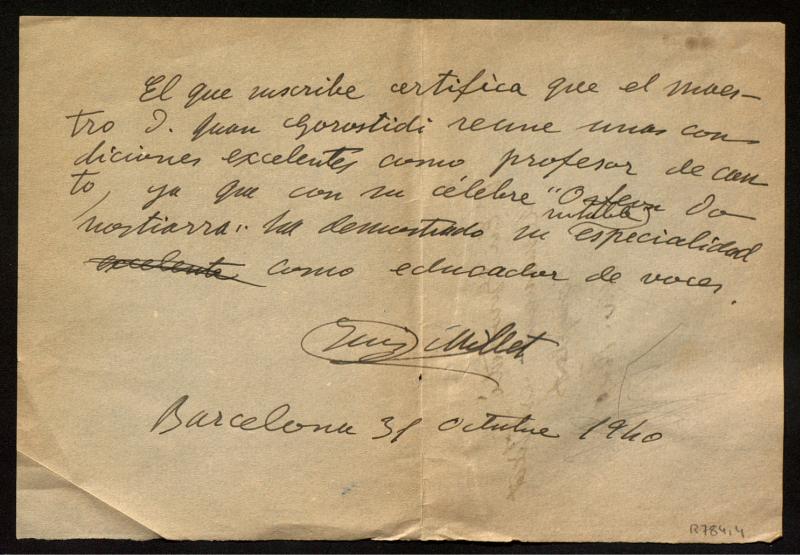 El que suscribe certifica que el maes-
tro D. Juan Gorostidi reune unas con
diciones excelentes como profesor de can
to, ya que con su célebre "Orfeon Do
nostiarra" ha demostrado su notable especialidad
excelente como educador de voces.
Luis Millet
Barcelona 31 octubre 1940
R784,4